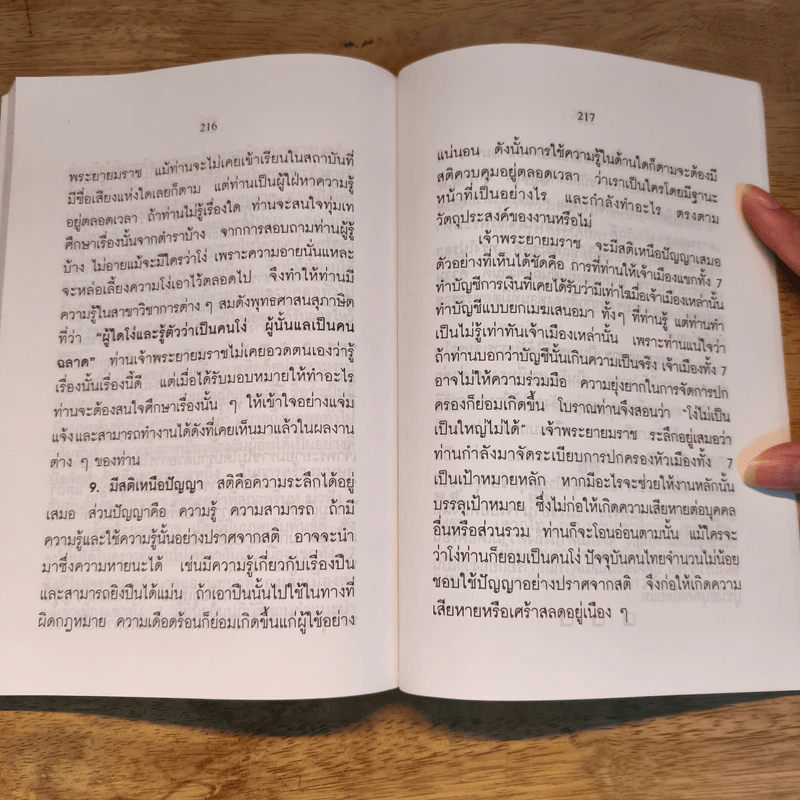 216
พระยายมราช แม้ท่านจะไม่เคยเข้าเรียนในสถาบันที่
มีชื่อเสียงแห่งใดเลยก็ตาม แต่ท่านเป็นผู้ใฝ่หาความรู้
อยู่ตลอดเวลา ถ้าท่านไม่รู้เรื่องใด ท่านจะสนใจทุ่มเท
ศึกษาเรื่องนั้นจากตำราบ้าง จากการสอบถามท่านผู้รู้
บ้าง ไม่อายแม้จะมีใครว่าโง่ เพราะความอายนั่นแหละ
จะหล่อเลี้ยงความโง่เอาไว้ตลอดไป จึงทำให้ท่านมี
ความรู้ในสาขาวิชาการต่าง ๆ สมดังพุทธศาสนสุภาษิต
ที่ว่า "ผู้ใดโง่และรู้ตัวว่าเป็นคนโง่ ผู้นั้นแลเป็นคน
ฉลาด" ท่านเจ้าพระยายมราชไม่เคยอวดตนเองว่ารู้
เรื่องนั้นเรื่องนี้ดี แต่เมื่อได้รับมอบหมายให้ทำอะไร
ท่านจะต้องสนใจศึกษาเรื่องนั้น ๆ ให้เข้าใจอย่างแจ่ม
แจ้งและสามารถทำงานได้ดังที่เคยเห็นมาแล้วในผลงาน
ต่าง ๆ ของท่าน
9. มีสติเหนือปัญญา สติคือความระลึกได้อยู่
เสมอ ส่วนปัญญาคือ ความรู้ ความสามารถ ถ้ามี
ความรู้และใช้ความรู้นั้นอย่างปราศจากสติ อาจจะนำ
มาซึ่งความหายนะได้ เช่นมีความรู้เกี่ยวกับเรื่องปืน
และสามารถยิงปืนได้แม่น ถ้าเอาปืนนั้นไปใช้ในทางที่
ผิดกฎหมาย ความเดือดร้อนก็ย่อมเกิดขึ้นแก่ผู้ใช้อย่าง
217
แน่นอน ดังนั้นการใช้ความรู้ในด้านใดก็ตามจะต้องมี
สติควบคุมอยู่ตลอดเวลา ว่าเราเป็นใครโดยมีฐานะ
หน้าที่เป็นอย่างไร และกำลังทำอะไร ตรงตาม
วัตถุประสงค์ของงานหรือไม่
เจ้าพระยายมราช จะมีสติเหนือปัญญาเสมอ
ตัวอย่างที่เห็นได้ชัดคือ การที่ท่านให้เจ้าเมืองแขกทั้ง 7
ทำบัญชีการเงินที่เคยได้รับว่ามีเท่าไรเมื่อเจ้าเมืองเหล่านั้น
ทำบัญชีแบบยกเมฆเสนอมา ทั้งๆ ที่ท่านรู้ แต่ท่านทำ
เป็นไม่รู้เท่าทันเจ้าเมืองเหล่านั้น เพราะท่านแน่ใจว่า
ถ้าท่านบอกว่าบัญชีนั้นเกินความเป็นจริง เจ้าเมืองทั้ง 7
อาจไม่ให้ความร่วมมือ ความยุ่งยากในการจัดการปก
ครองก็ย่อมเกิดขึ้น โบราณท่านจึงสอนว่า "โง่ไม่เป็น
เป็นใหญ่ไม่ได้" เจ้าพระยายมราช ระลึกอยู่เสมอว่า
ท่านกำลังมาจัดระเบียบการปกครองหัวเมืองทั้ง 7
เป็นเป้าหมายหลัก หากมีอะไรจะช่วยให้งานหลักนั้น
บรรลุเป้าหมาย ซึ่งไม่ก่อให้เกิดความเสียหายต่อบุคคล
อื่นหรือส่วนรวม ท่านก็จะโอนอ่อนตามนั้น แม้ใครจะ
ว่าโง่ท่านก็ยอมเป็นคนโง่ ปัจจุบันคนไทยจำนวนไม่น้อย
ชอบใช้ปัญญาอย่างปราศจากสติ จึงก่อให้เกิดความ
เสียหายหรือเศร้าสลดอยู่เนือง ๆ